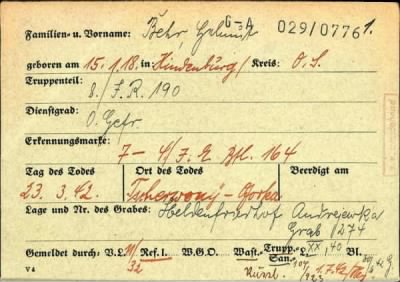 G-A 029/07761.
Familien- u. Vorname: Behr Helmut
geboren am 15.1.18. in Hindenburg/ Kreis: O.S.
Truppenteil:
8./J.R. 190
Dienstgrad:
O.Gefr.
Erkennungsmarke:
7 - 4/J.E. Btl. 164
Tag des Todes Ort des Todes Beerdigt am
23. 3. 42. Tscherwony-Gorka
Lage und Nr. des Grabes: Heldenfriedhof Andrejewka
Grab 1274
Gemeldet durch: V.L. Ref. I. W.G.O. Wast.- Trupp. San.- L. XX, 40 Bl.
32
V 4